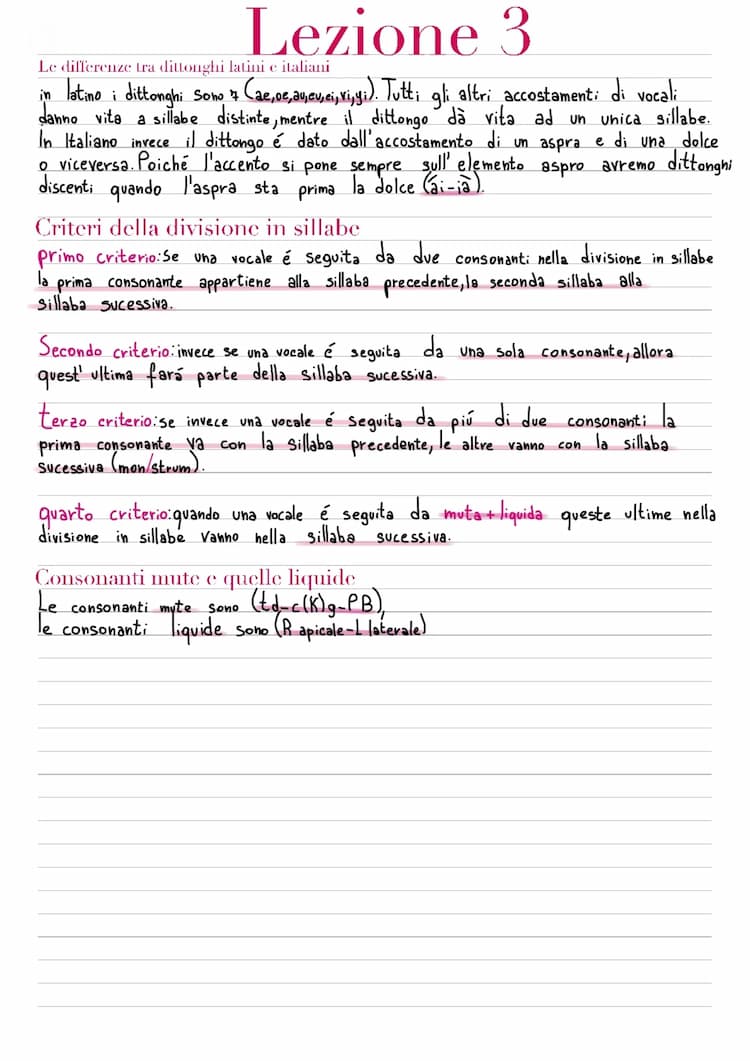 Lezione 3
Le differenze tra dittonghi latini e italiani
in latino i dittonghi sono 7 (ae,oe,au,eu,ei,vi,yi). Tutti gli altri accostamenti di vocali
danno vita a sillabe distinte, mentre il dittongo dà vita ad un unica sillabe.
In Italiano invece il dittongo é dato dall'accostamento di un aspra e di una dolce
o viceversa. Poiché l'accento si pone sempre sull'elemento aspro avremo dittonghi
discenti quando l'aspra sta prima la dolce (ái-ià).
Criteri della divisione in sillabe
primo criterio: Se una vocale é seguita da due consonanti nella divisione in sillabe
la prima consonante appartiene alla sillaba precedente, la seconda sillaba alla
sillaba sucessiva.
Secondo criterio: invece se una vocale é seguita da una sola consonante, allora
quest'ultima fará parte della sillaba sucessiva.
terzo criterio: se invece una vocale é seguita da piú di due consonanti la
prima consonante va con la sillaba precedente, le altre vanno con la sillaba
sucessiva (mon/strum).
quarto criterio: quando una vocale é seguita da muta+liquida queste ultime nella
divisione in sillabe vanno nella sillaba sucessiva.
Consonanti mute e quelle liquide
Le consonanti myte sono (td-c(K)g-PB),
le consonanti liquide sono (R apicale-L laterale)